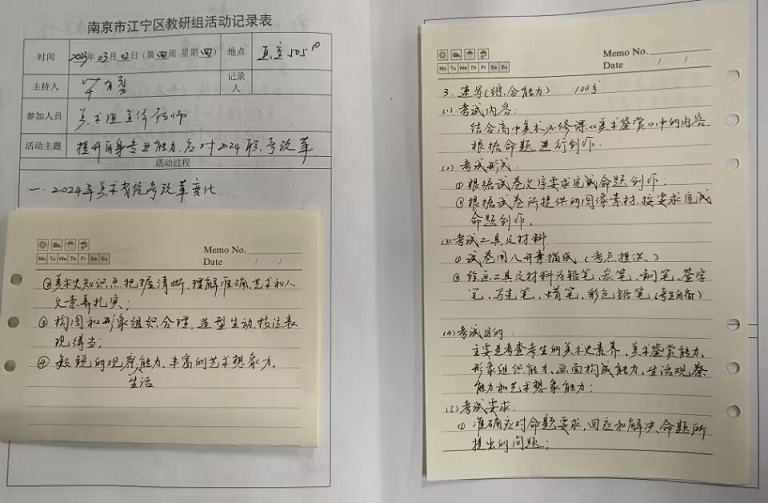 南京市江宁区教研组活动记录表
时间 2023年03月02日(第四周 星期四) 地点 505
主持人 记录人
参加人员 美术组全体教师
活动主题 提升自身专业能力,应对2024联考改革
活动过程
一. 2024年美术省统考改革变化
Memo No.
Mo Tu We Th Fr Sa Su
Date / /
②美术史知识点把握清晰,理解准确,艺术和人
文素养扎实;
③ 构图和形象组织合理,造型生动,技法表
现得当;
④ 敏锐的观察能力,丰富的艺术想象力.
生活
Memo No.
Mo Tu We Th Fr Sa Su
Date / /
3. 速写(综合能力) 100分
(1) 考试内容:
结合高中美术必修课《美术鉴赏》中的内容
根据命题进行创作.
(2) 考试形式:
① 根据试卷文字要求完成命题创作.
② 根据试卷所提供的图像素材,按要求完成
命题创作.
(3) 考试工具及材料
① 试卷用八开素描纸 (考点提供)
② 绘画工具及材料为铅笔、炭笔、钢笔、签字
笔、马克笔、蜡笔、彩色铅笔 (考生自备)
(4) 考试目的:
主要是考查考生的美术史素养,美术鉴赏能力,
形象组织能力,画面构成能力,生活观察
能力和艺术想象能力;
(5) 考试要求:
① 准确应对命题要求,回应和解决命题所
提出的问题;